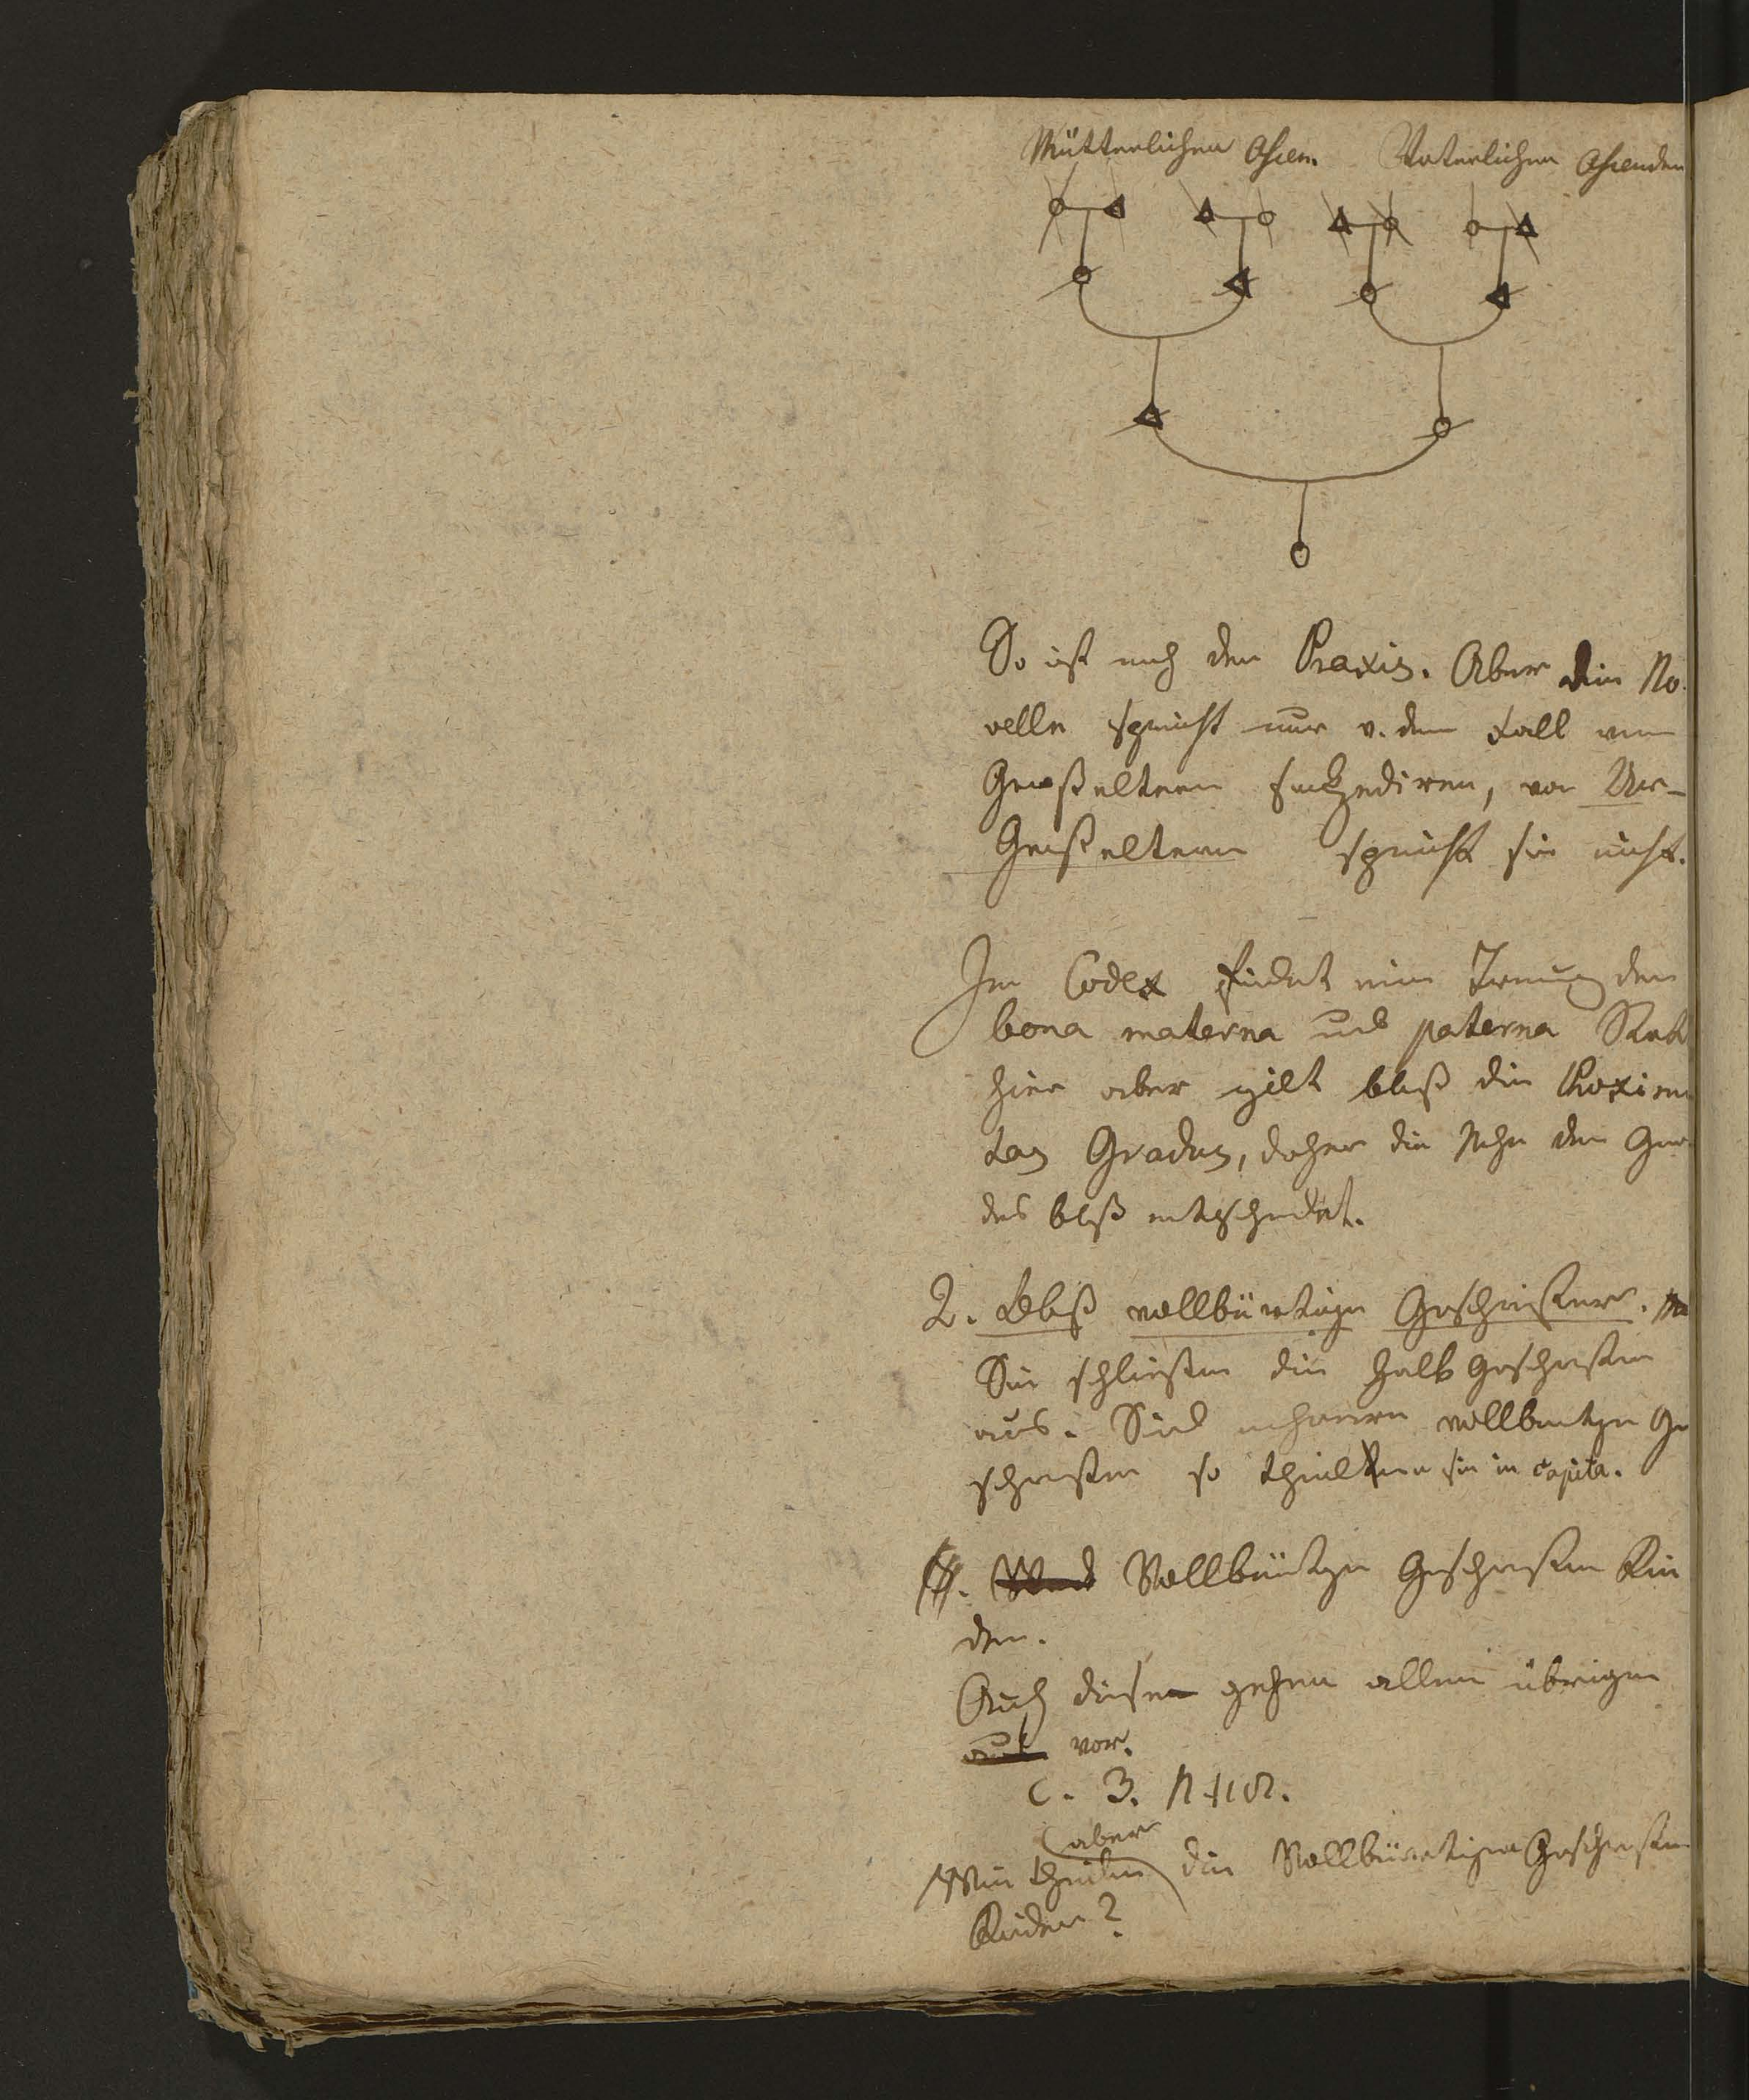 Mütterlichen Ascen. Väterlichen Ascenden
So ist nach der Praxis. Aber die No-
velle spricht nur v. dem Fall wenn
Großeltern sukzediren, von Ur-
Großeltern spricht sie nicht.
Im Codex findet eine Trenung der
bona materna und paterna Statt
hier aber gilt bloß die Proximi
tas Gradus, daher die Nähe des Gra
des bloß entscheidet.
2. Bloß vollbürtige Geschwister.
Sie schließen die Halbgeschwister
aus. Sind mehrere vollbürtge Ge
schwister so theilen sie in capita.
Vollbürtge Geschwister Kin
der.
Auch diese gehen allen übrigen
vor.
C. 3. N 118.
aber
Wie theilen die Vollbürtigen Geschwister
Kinder?